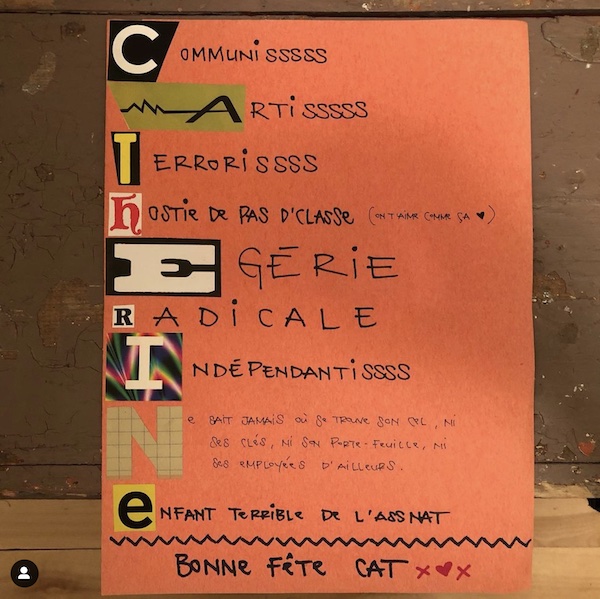 COMMUNiSSSSS
ARTiSSSSS
TERRORiSSSS
hOSTIE DE PAS D'CLASSE (ON T'AIME COMME ÇA ♥)
EGÉRiE
RADiCALE
INDÉPENDANTiSSSS
Ne SAIT JAMAIS OÙ SE TROUVE SON CEL, NI
SES CLÉS, NI SON PORTE-FEUILLE, NI
SES EMPLOYÉES D'AILLEURS.
eNFANT TeRRIBLE DE L'ASSNAT
BONNE FêTE CAT x♥x